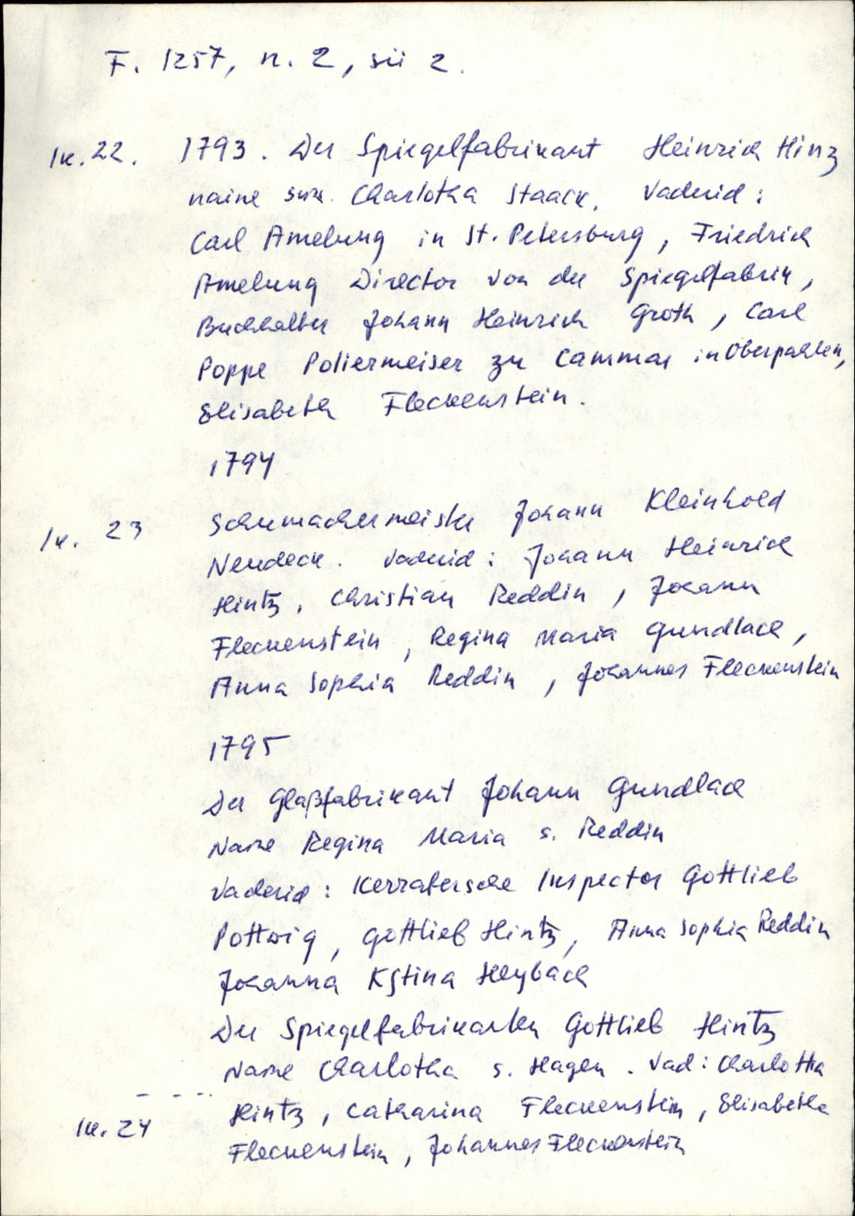 F. 1257, n. 2, sü 2.
lk. 22. 1793. Der Spiegelfabrikant Heinrich Hinz
naine sün. Charlotha Staack. Vaderid:
Carl Amelung in St. Petersburg, Friedrich
Amelung Director von der Spiegelfabrik,
Buchhalter Johann Heinrich Groth, Carl
Poppe Poliermeiser zu Cammar in Oberpahlen,
Elisabeth Fleckenstein.
1794
lk. 23 Schumachermeister Johann Kleinhold
Neudeck. Vaderid: Johann Heinrich
Hintz, Christian Reddin, Johann
Fleckenstein, Regina Maria Gundlach,
Anna Sophia Reddin, Johannes Fleckenstein
1795
Der Glaßfabrikant Johann Gundlach
Naine Regina Maria s. Reddin
Vaderid: Kerrafersche Inspector Gottlieb
Pottwig, Gottlieb Hintz, Anna Sophia Reddin
Johanna Kstina Heybach
Der Spiegelfabrikanten Gottlieb Hintz
Naine Charlotha s. Hagen. Vad: Charlotha
Hintz, Catharina Fleckenstein, Elisabetha
lk. 24 Fleckenstein, Johannes Fleckenstein